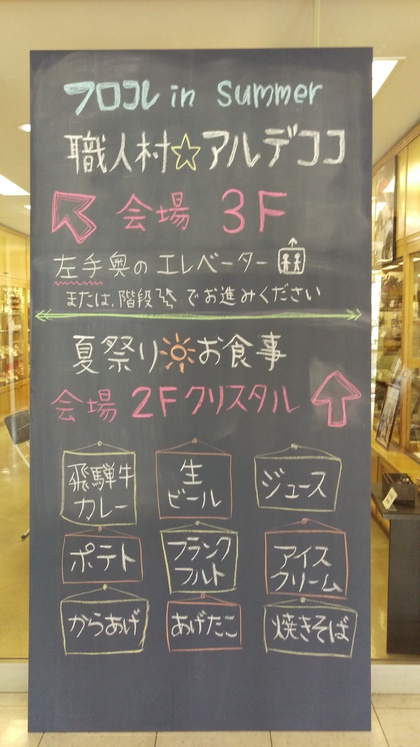 フロコレ in summer
職人村☆アルデココ
会場 3F
左手奥の エレベーター
または、階段 でお進みください
夏祭り お食事
会場 2F クリスタル
飛騨牛
カレー
生
ビール
ジュース
ポテト
フランク
フルト
アイス
クリーム
からあげ
あげたこ
焼きそば